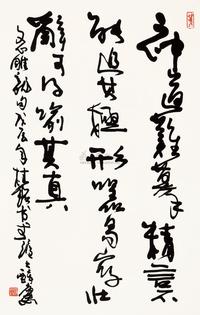 神道難摹精言不
能追其極形器易寫壯
辭可得喻其真
文心雕龍句戊辰年